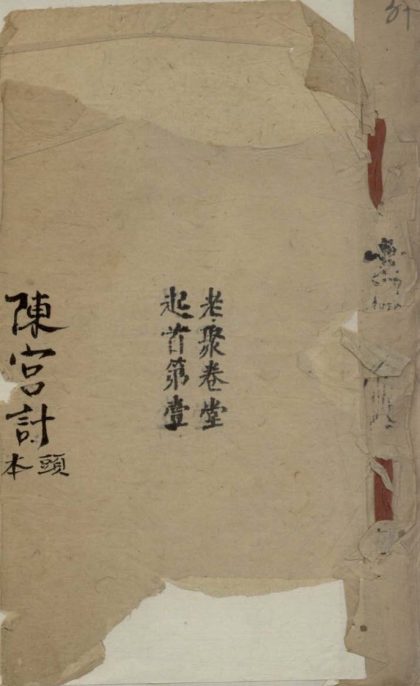 老聚卷堂
起首第壹
陳宮計
頭本